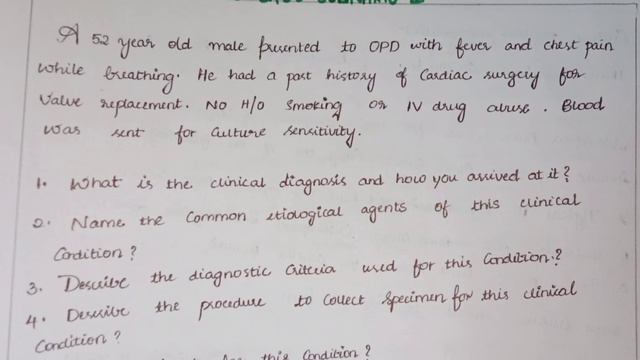 A 52 year old male presented to OPD with fever and chest pain
while breathing. He had a past history of Cardiac surgery for
Value replacement. NO H/o Smoking or IV drug abuse. Blood
was sent for Culture Sensitivity.
1. What is the clinical diagnosis and how you arrived at it?
2. Name the Common etiological agents of this clinical
Condition?
3. Describe the diagnostic Criteria used for this Condition?
4. Describe the procedure to Collect Specimen for this clinical
Condition?
this Condition?